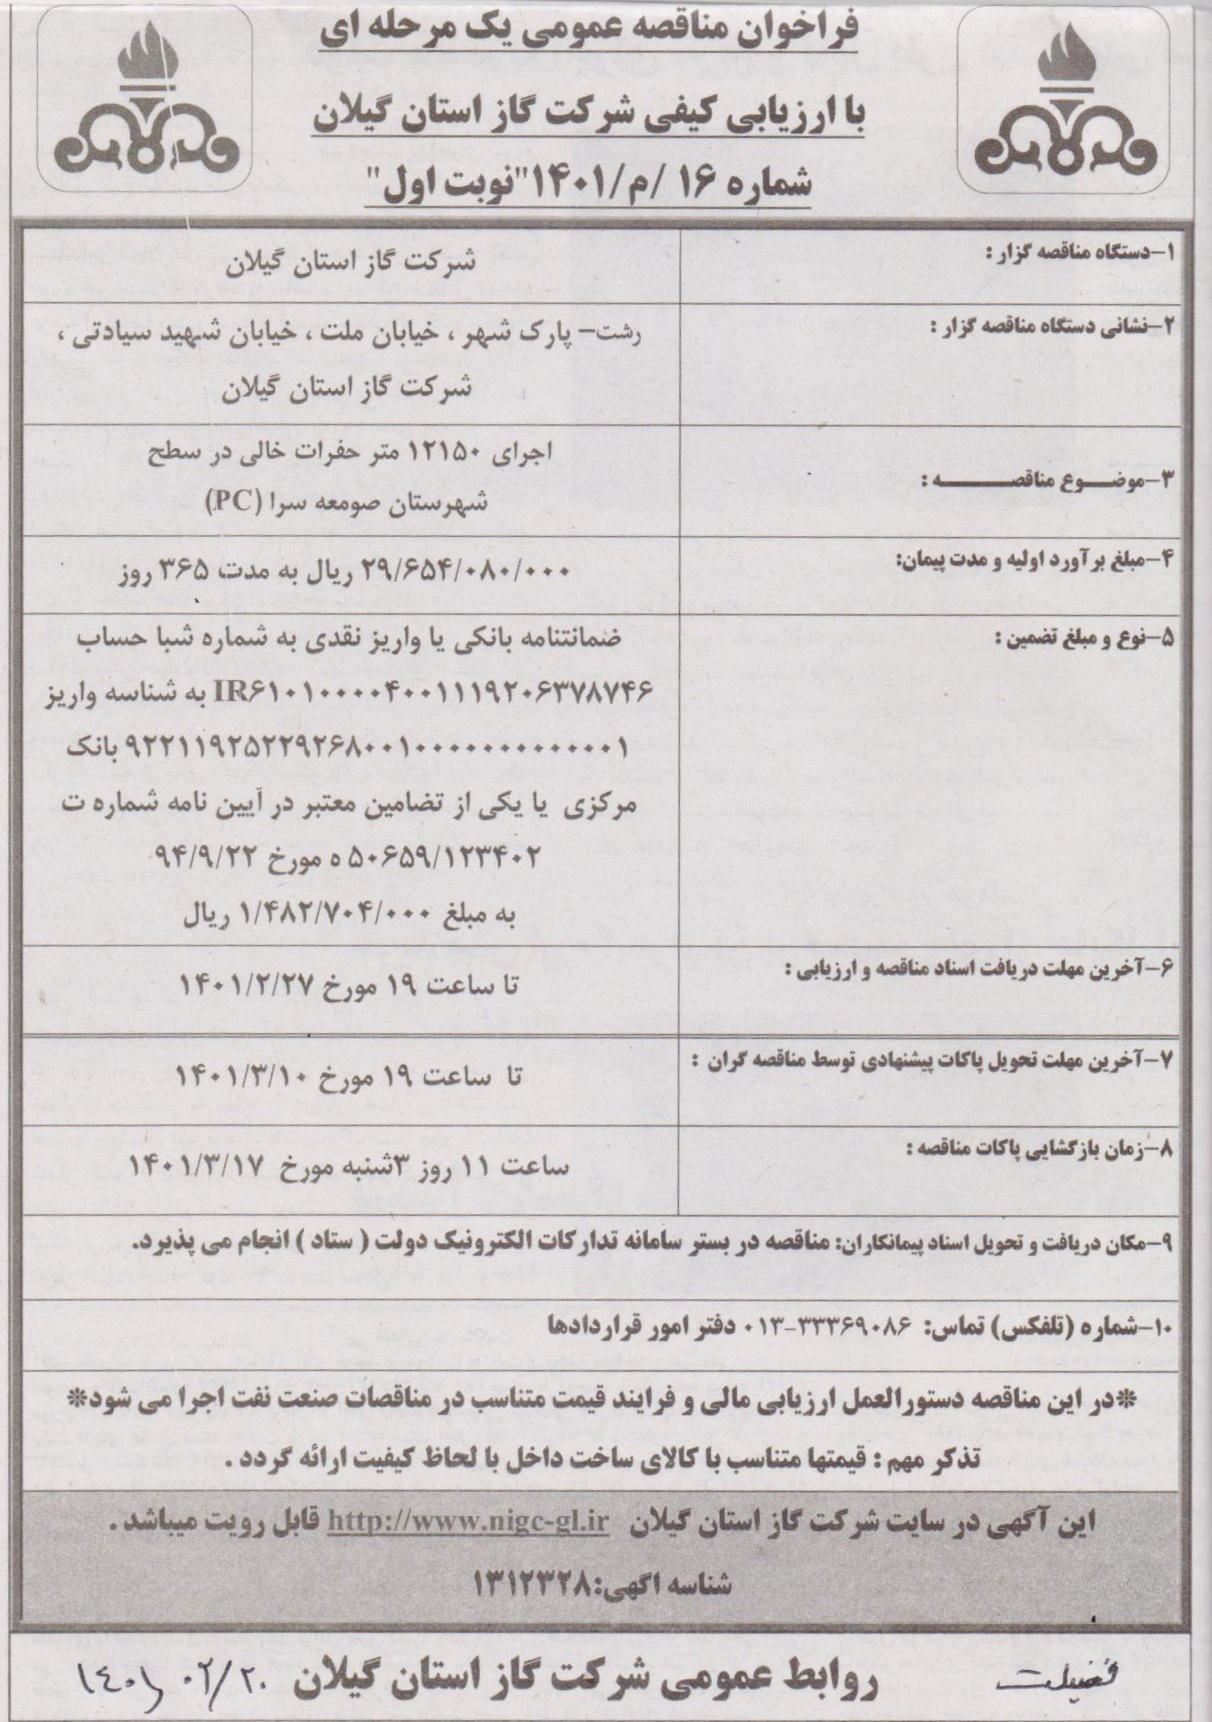 فراخوان مناقصه عمومی یک مرحله ای
با ارزیابی کیفی شرکت گاز استان گیلان
شماره ۱۶ /م/۱۴۰۱"نوبت اول"
۱-دستگاه مناقصه گزار :
شرکت گاز استان گیلان
۲-نشانی دستگاه مناقصه گزار :
رشت- پارک شهر ، خیابان ملت ، خیابان شهید سیادتی ،
شرکت گاز استان گیلان
۳-موضوع مناقصه :
اجرای ۱۲۱۵۰ متر حفرات خالی در سطح
شهرستان صومعه سرا (PC)
۴-مبلغ برآورد اولیه و مدت پیمان:
۲۹/۶۵۴/۰۸۰/۰۰۰ ریال به مدت ۳۶۵ روز
۵-نوع و مبلغ تضمین :
ضمانتنامه بانکی یا واریز نقدی به شماره شبا حساب
IR۶۱۰۱۰۰۰۰۴۰۰۱۱۱۹۲۰۶۳۷۸۷۴۶ به شناسه واریز
۹۲۲۱۱۹۲۵۲۲۹۲۶۸۰۰۱۰۰۰۰۰۰۰۰۰۰۰۰۱ بانک
مرکزی یا یکی از تضامین معتبر در آیین نامه شماره ت
۵۰۶۵۹/۱۲۳۴۰۲ ه مورخ ۹۴/۹/۲۲
به مبلغ ۱/۴۸۲/۷۰۴/۰۰۰ ریال
۶-آخرین مهلت دریافت اسناد مناقصه و ارزیابی :
تا ساعت ۱۹ مورخ ۱۴۰۱/۲/۲۷
۷-آخرین مهلت تحویل پاکات پیشنهادی توسط مناقصه گران :
تا ساعت ۱۹ مورخ ۱۴۰۱/۳/۱۰
۸-زمان بازگشایی پاکات مناقصه :
ساعت ۱۱ روز ۳شنبه مورخ ۱۴۰۱/۳/۱۷
۹-مکان دریافت و تحویل اسناد پیمانکاران: مناقصه در بستر سامانه تدارکات الکترونیک دولت ( ستاد ) انجام می پذیرد.
۱۰-شماره (تلفکس) تماس: ۰۱۳-۳۳۳۶۹۰۸۶ دفتر امور قراردادها
*در این مناقصه دستورالعمل ارزیابی مالی و فرایند قیمت متناسب در مناقصات صنعت نفت اجرا می شود*
تذکر مهم : قیمتها متناسب با کالای ساخت داخل با لحاظ کیفیت ارائه گردد .
این آگهی در سایت شرکت گاز استان گیلان http://www.nigc-gl.ir قابل رویت میباشد .
شناسه اگهی:۱۳۱۲۳۲۸
روابط عمومی شرکت گاز استان گیلان
فضیلت
۱۴۰۱/۰۲/۲۰